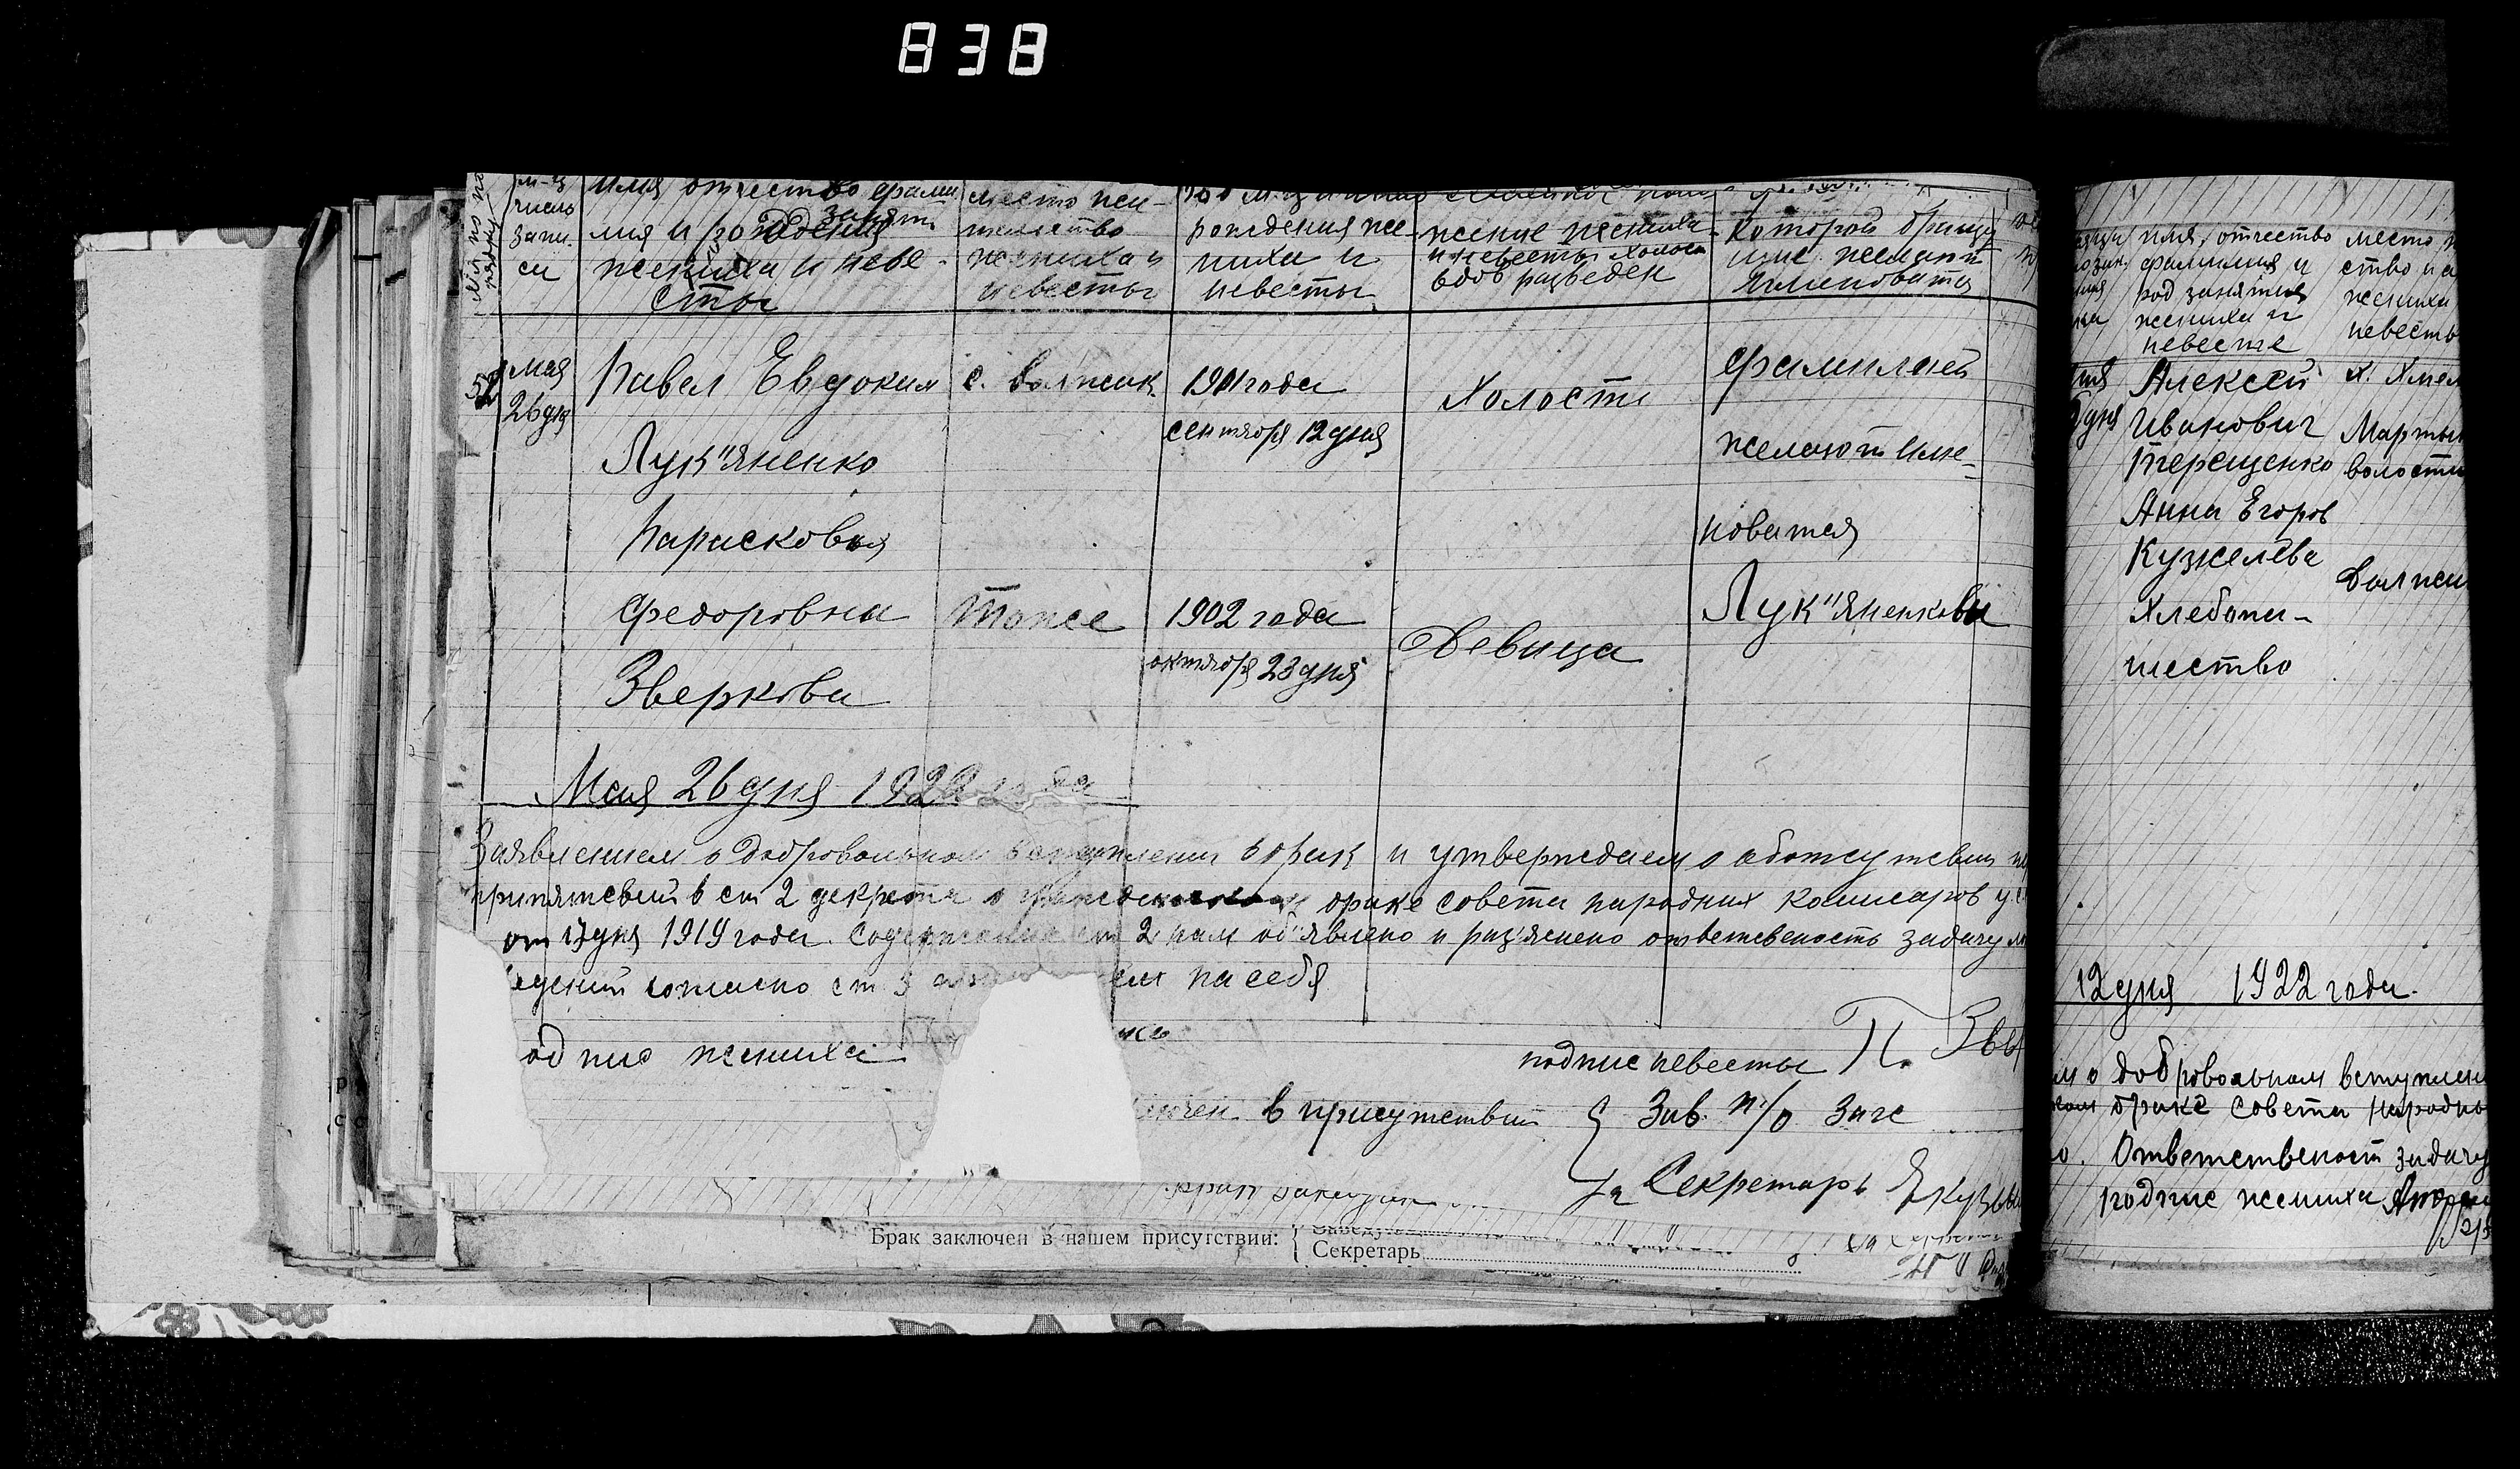 838
№ по по
рядку
м-ц
число
запи.
си
имя отчество фами
лия и род занят
жениха и неве-
сты
место жи-
тельство
жениха и
невесты
рождения же-
ниха и
невесты
жение жениха
и невесты холост
вдов разведен
Которой брачу
щие желают
именоваться
52
мая
26 дня
Павел Евдоким
Лук"яненко
Парасковья
Федоровна
Зверкова
с. Валуйск.
тоже
1901 года
сентября 12 дня
1902 года
октября 23 дня
Холост
Девица
фамилией
желают име-
новатся
Лук"яненкови
Мая 26 дня 1922 года
Заявлением о добровольном вступлении в брак и утверждаем о аботсутствии
припятсвий в ст 2 декрета о гражданском браке совета народных комисаров у.с
от 17 дня 1919 года. Содержание ст 2 нам об"явлено и раз'яснено ответсвеность задачу
едений согласно ст 3 ем на себя
одпис жениха
подпис невесты П. Звер
ючен в присутствии { Зав. п/о Загс
За Секретарь
Брак заключен в нашем присутствии: {
Секретарь
имя, отчество
фамилия и
род занятия
жениха и
невесте
место ж
ство и а
жениха
невесты
Алексей
Иванович
Терещенко
Анна Егоров
Кужелева
Хлебопа-
шество
х. Хмел
Марты
волости
12 дня 1922 года.
м о добровольном вступлен
браке совета народны
о. Ответственост задачу
подпис жениха